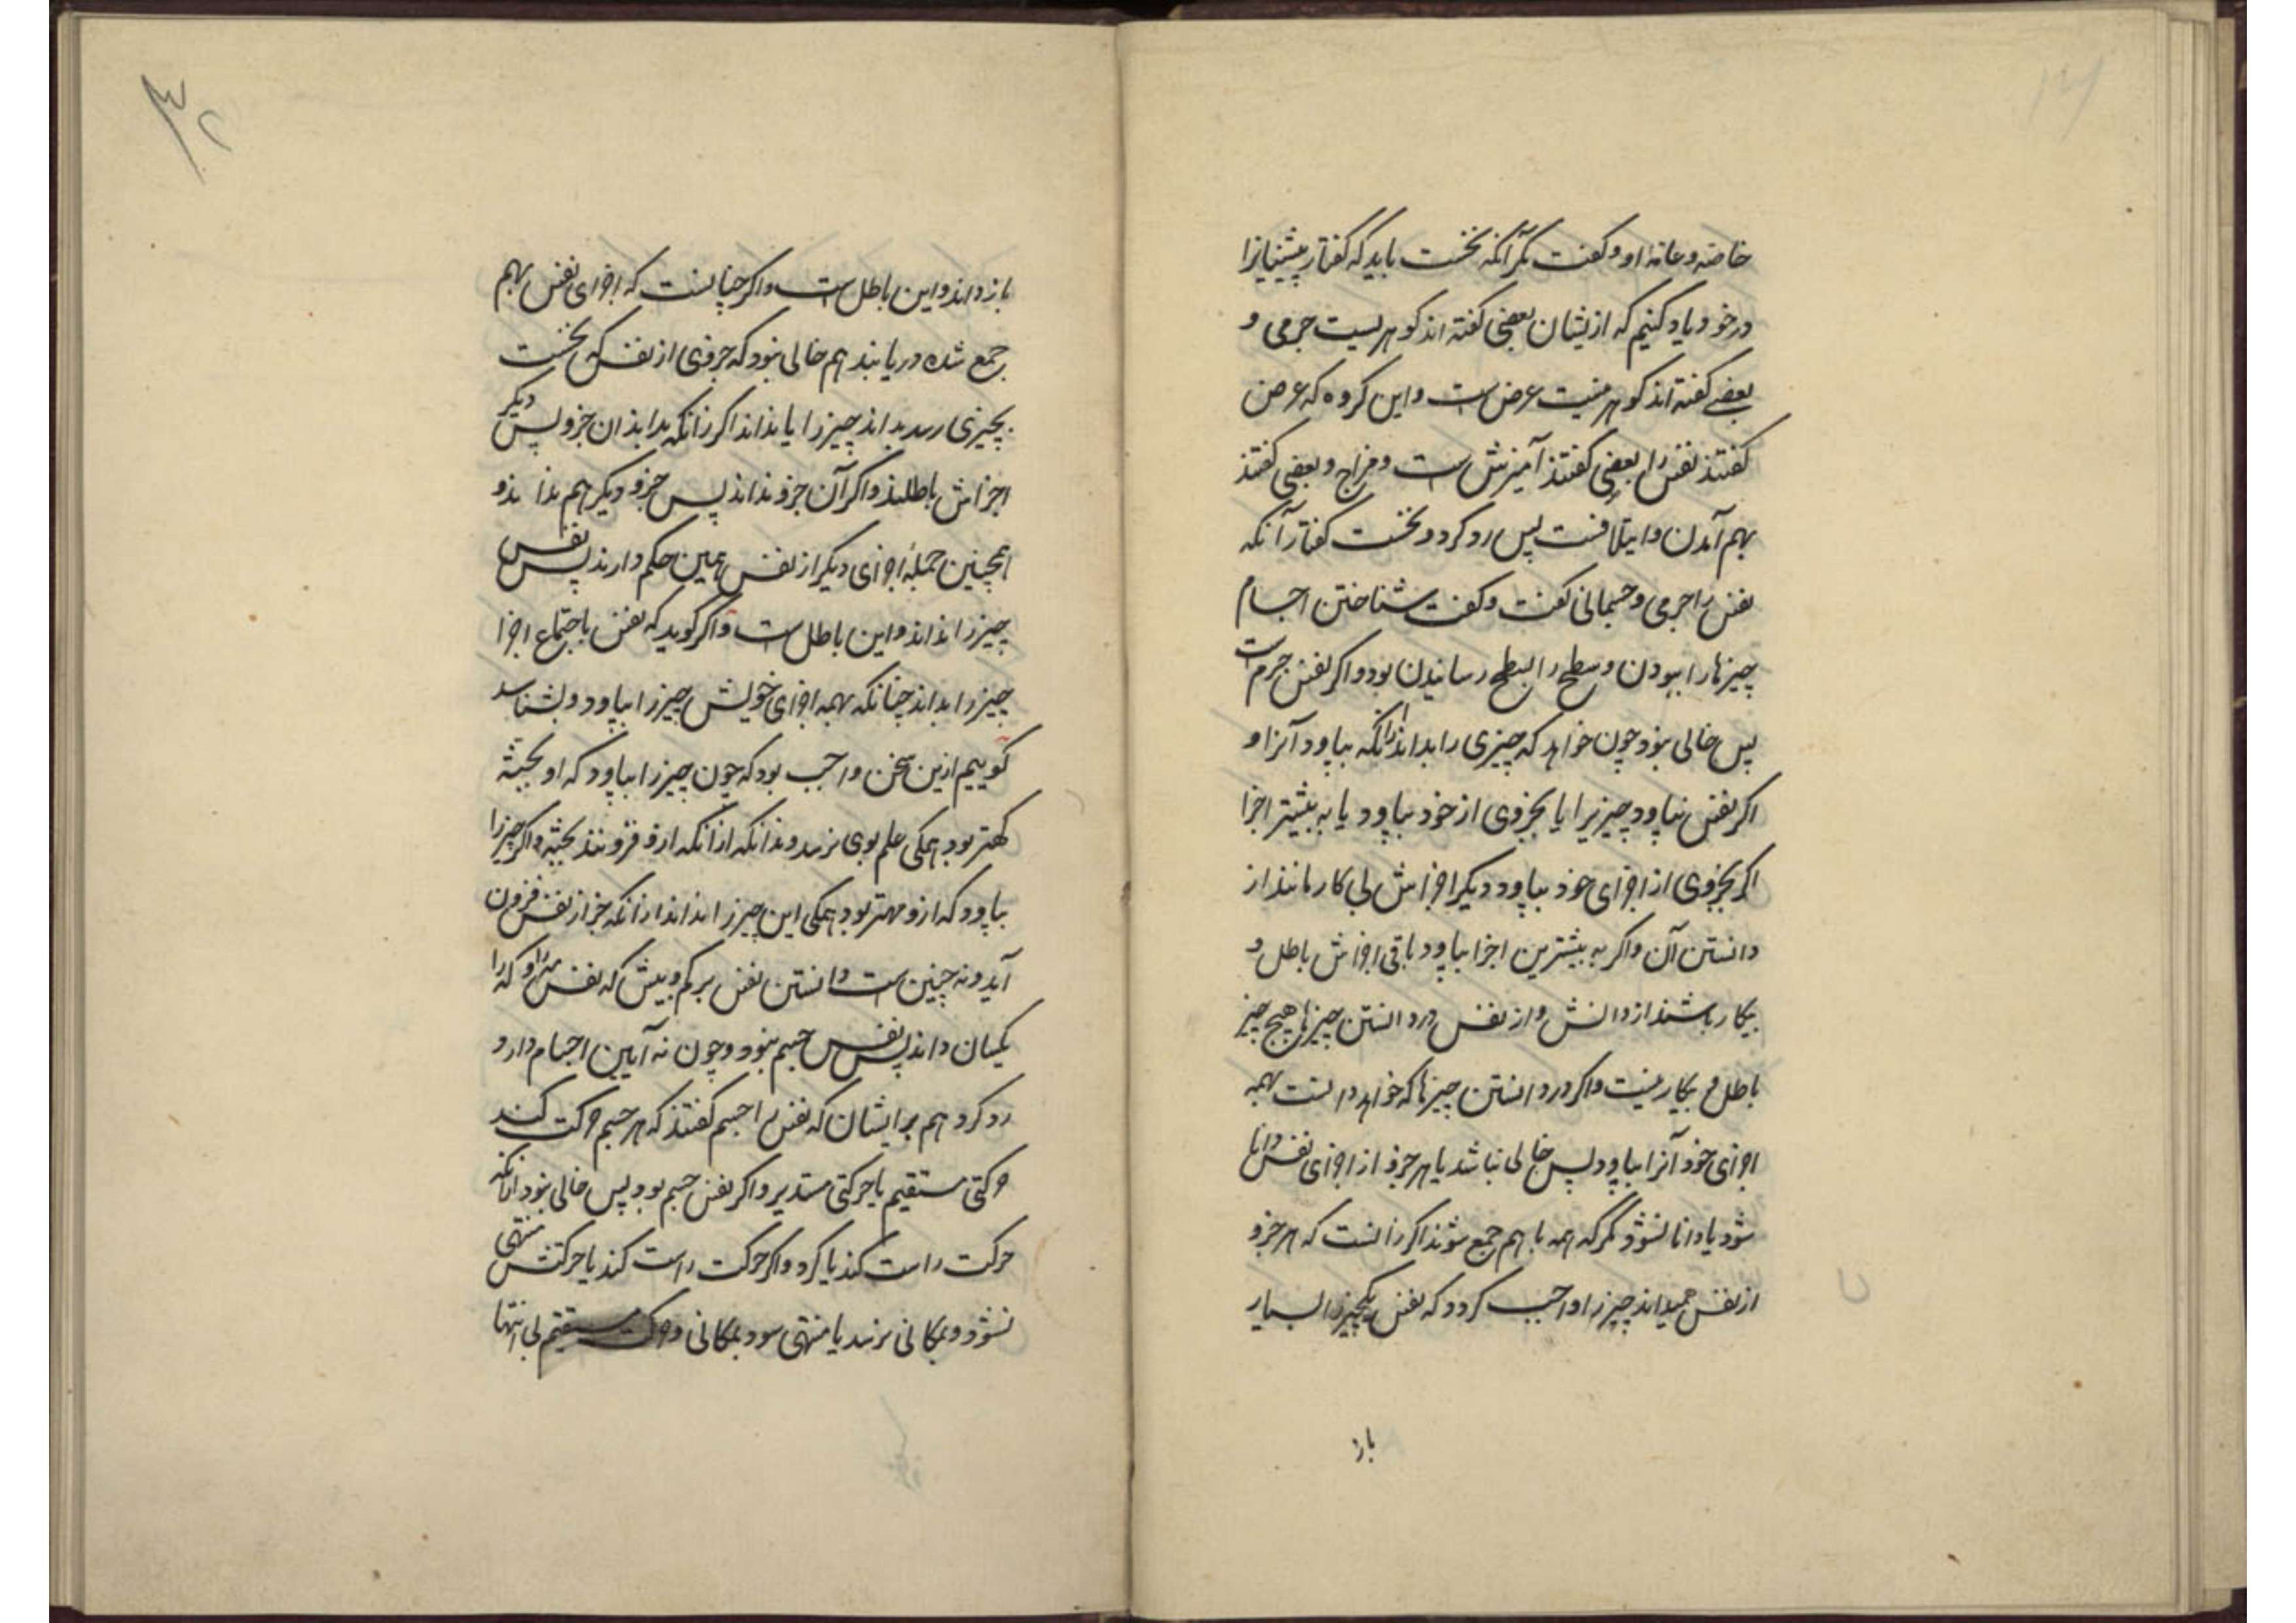 خاصه و عامه او و کفت مکر آنکه نخست باید که کفتار پیشینیانرا
در خود یاد کنیم که ازیشان بعضی کفته اند کوهریست جرمی و
بعضی کفته اند کوهر نیست عرض است و این کروه که عرض
کفتند نفس را بعضی کفتند آمیزش است و مزاج و بعضی کفتند
بهم آمدن و ایتلافست پس رد کرد و نخست کفتار آنکه
نفس را جرمی و جسمانی کفت و کفت شناختن اجسام
چیزها را ببودن و سطح را بسطح رسانیدن بود و اکر نفس جرم است
پس خالی نبود چون خواهد که چیزی را بداند از آنکه بپاود آنرا و
اکر نفس بپاود چیزیرا یا بجزوی از خود بپاود یا به بیشتر اجزا
اکر بجزوی از اجزای خود بپاود دیکر اجزاش بی کار مانند از
دانستن آن و اکر به بیشترین اجزا بپاود باقی اجزاش باطل و
بیکار باشند از دانش و از نفس در دانستن چیزها هیچ چیز
باطل و بیکار نیست و اکر در دانستن چیزها که خواهد دانست بهمه
اجزای خود آنرا بپاود پس خالی نباشد یا هر جزو از اجزای نفس دانا
شود یا دانا نشود مکر که همه با هم جمع شوند اکر زانست که هر جزو
از نفس همیداند چیزرا واجب کردد که نفس یکچیزرا بسیار
بار
۳۲
بار داند و این باطل است و اکر چنانست که اجزای نفس بهم
جمع شده دریابند هم خالی نبود که جزوی از نفس که نخست
بچیزی رسد بداند چیزرا یا نداند اکر زانکه بداند آن جزو پس دیکر
اجزاش باطلند و اکر آن جزو نداند پس جزو دیکر هم نداند و
همچنین جملهٔ اجزای دیکر از نفس همین حکم دارند پس نفس
چیزرا نداند و این باطل است و اکر کوید که نفس باجتماع اجزا
چیزرا بداند چنانکه بهمه اجزای خویش چیزرا بپاود و بشناسد
کوییم ازین سخن واجب بود که چون چیزرا بپاود که او بجثه
کهتر بود همکی علم بوی نرسد و نداند از آنکه ازو فزونند بجثه و اکر چیزرا
بپاود که ازو مهتر بود همکی این چیزرا نداند از آنکه جز از نفس فزون
آید و نه چنین است دانستن نفس بر کم و بیش که نفس
یکسان داند پس نفس جسم نبود و چون نه آیین اجسام دارد
رد کرد هم بر ایشان که نفس را جسم کفتند که هر جسم حرکت کند
حرکتی مستقیم یا حرکتی مستدیر و اکر نفس جسم بود پس خالی نبود از آنکه
حرکت راست کند یا کرد و اکر حرکت راست کند یا حرکتش منتهی
نشود و بمکانی نرسد یا منتهی شود بمکانی و حرکت مستقیم بی انتها